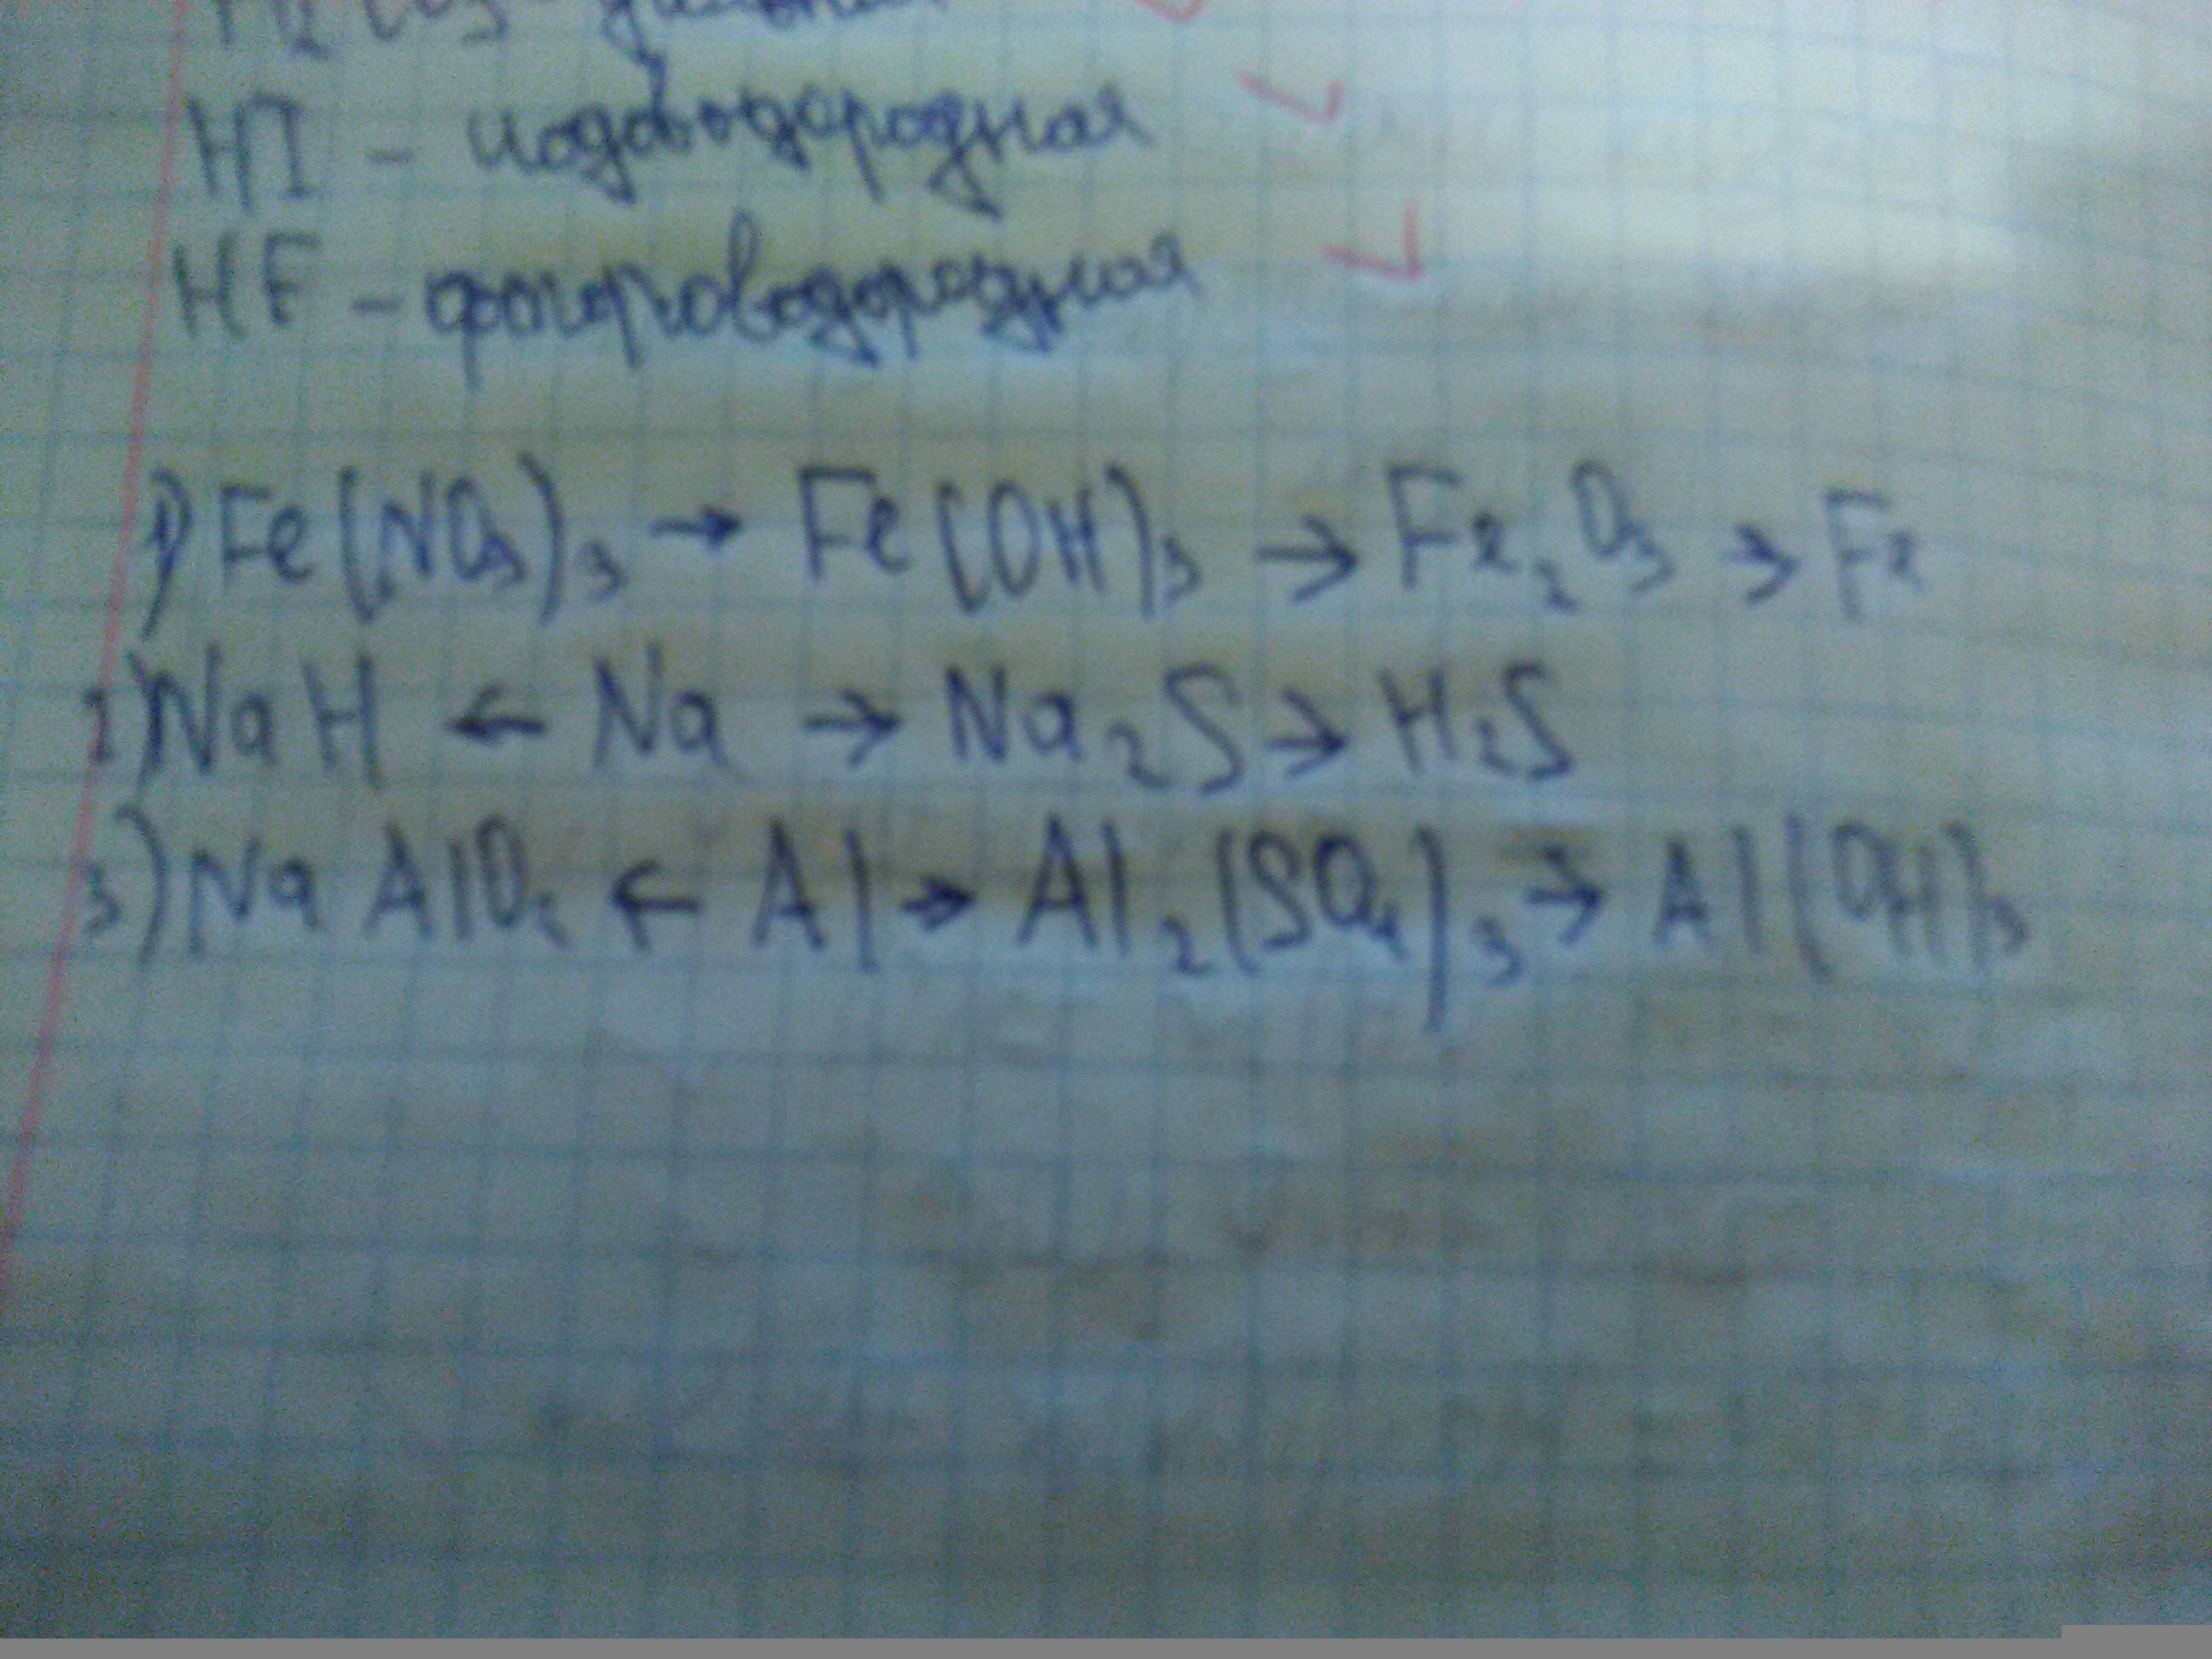 HI - иодоводородная
HF - фтороводородная
1) Fe(NO₃)₃ → Fe(OH)₃ → Fe₂O₃ → Fe
2) NaH ← Na → Na₂S → H₂S
3) NaAlO₂ ← Al → Al₂(SO₄)₃ → Al(OH)₃